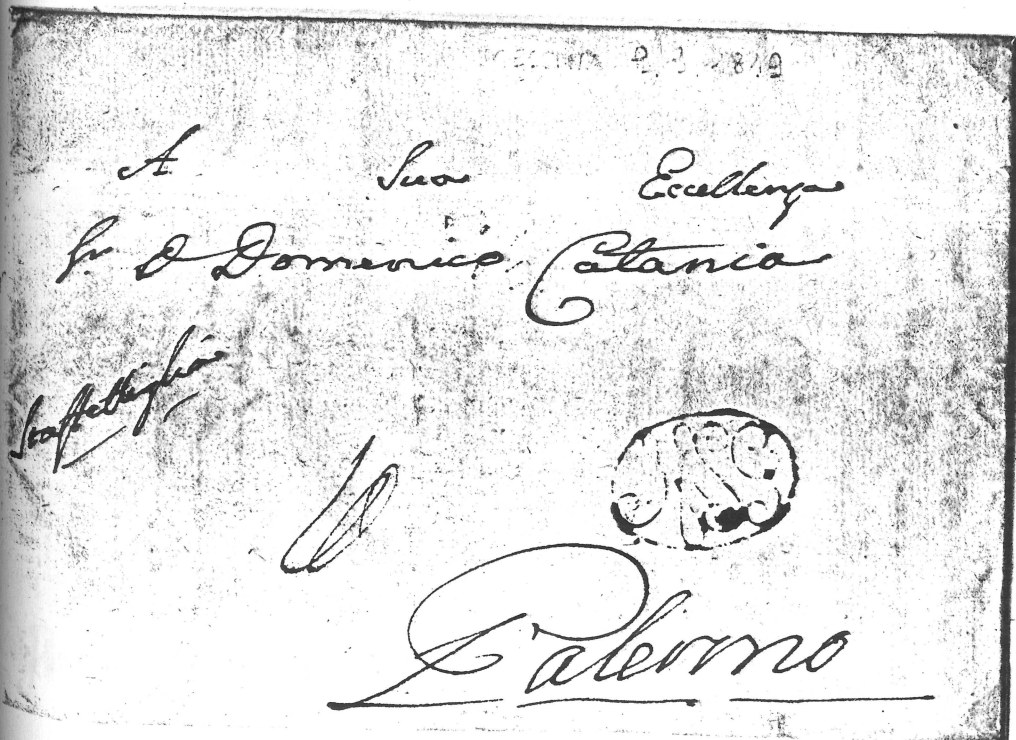 A Sua Eccellenza
Sr D Domenico Catania
Staffettiglia
Palermo